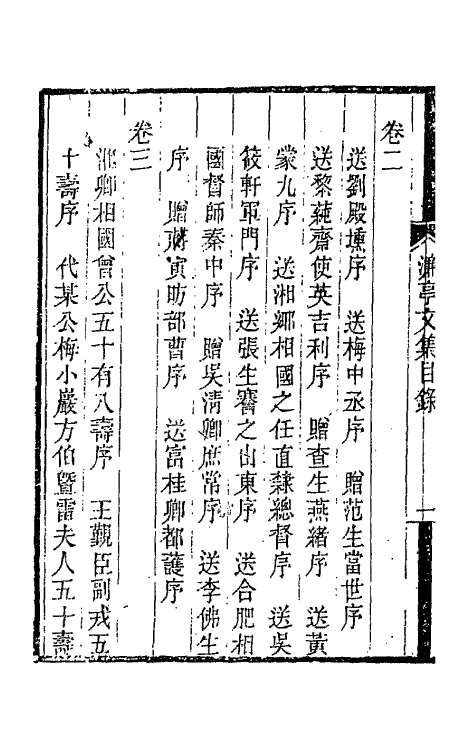 濂亭文集目錄
一
卷二
送劉殿壎序 送梅中丞序 贈范生當世序
送黎蒓齋使英吉利序 贈查生燕緒序 送黃
蒙九序 送湘鄉相國之任直隸總督序 送吳
筱軒軍門序 送張生謇之山東序 送合肥相
國督師秦中序 贈吳清卿庶常序 送李佛生
序 贈蔣寅昉部曹序 送富桂卿都護序
卷三
湘鄉相國曾公五十有八壽序 王覲臣副戎五
十壽序 代某公梅小巖方伯暨雷夫人五十壽